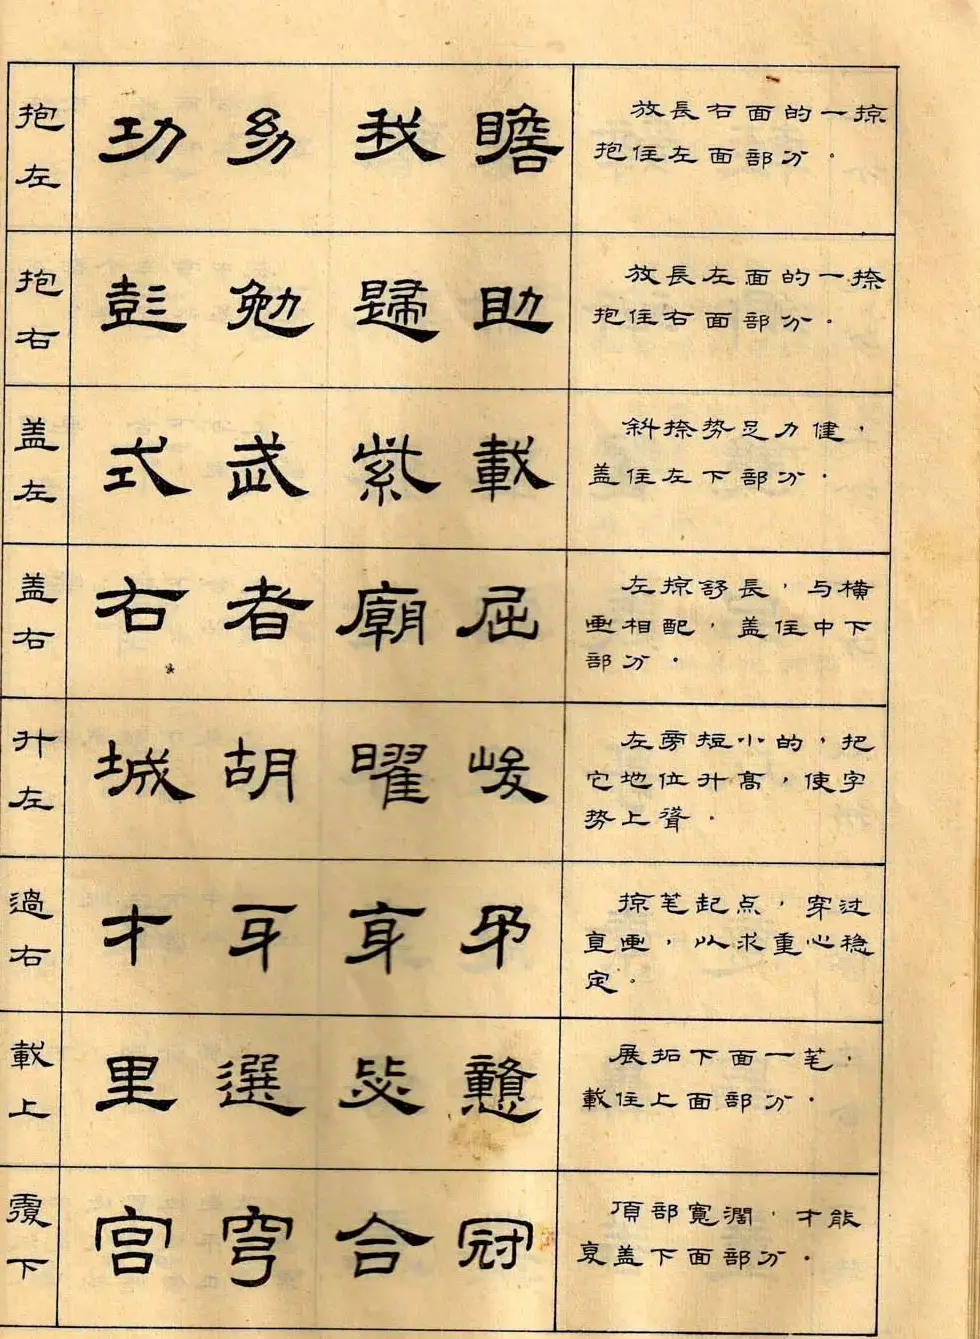 抱左
功 幼 我 瞻
放長右面的一掠
抱住左面部分。
抱右
彭 勉 歸 助
放長左面的一捺
抱住右面部分.
盖左
式 武 紫 載
斜捺势足力健,
盖住左下部分.
盖右
右 者 廟 屈
左掠舒長,与横
画相配,盖住中下
部分。
升左
城 胡 曜 峻
左旁短小的,把
它地位升高,使字
势上聳.
過右
才 牙
掠笔起点,穿过
直画,以求重心稳
定。
載上
里 選 毖
展拓下面一笔,
載住上面部分.
覆下
宫 穹 合 冠
頂部寬濶,才能
覆盖下面部分.